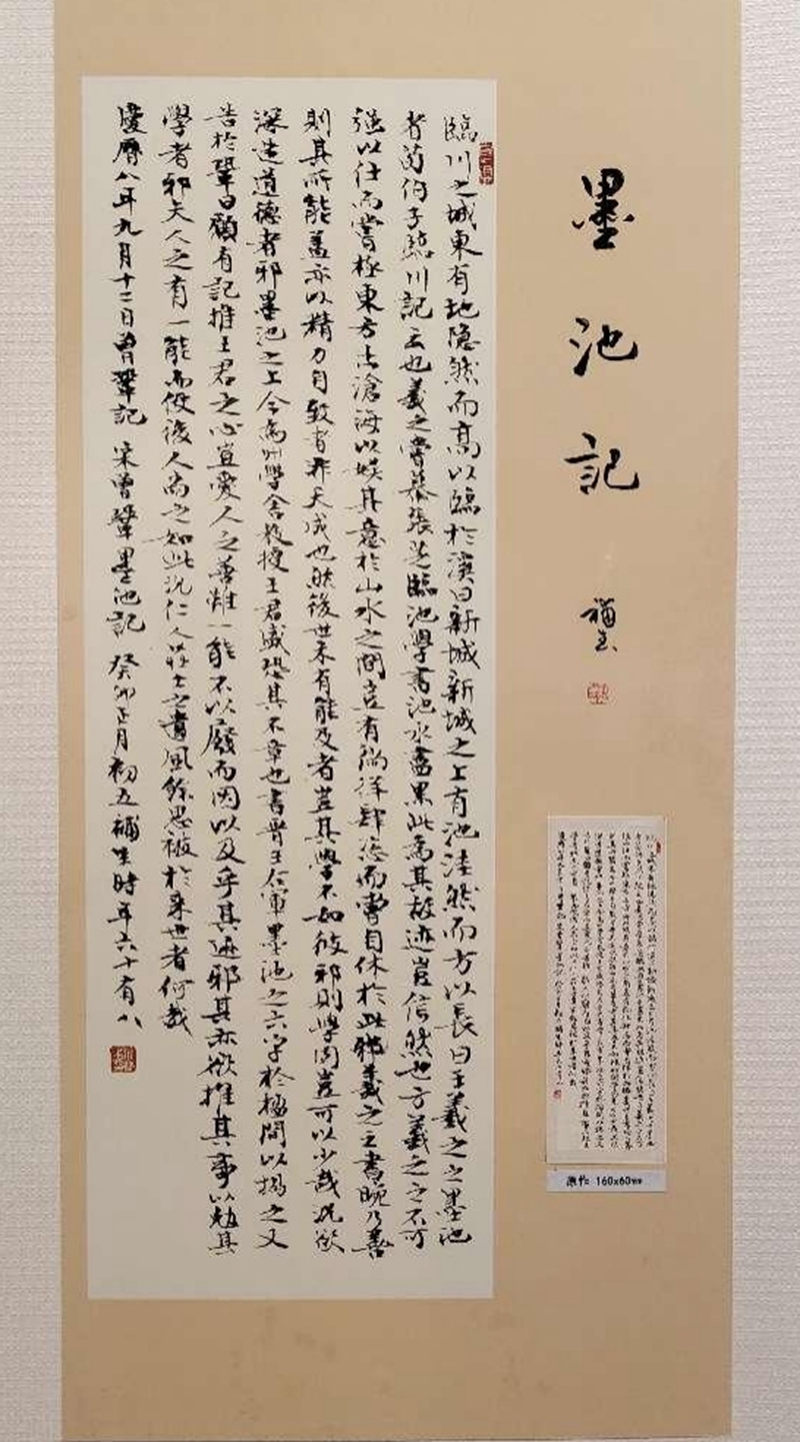 墨池記
補生
臨川之城東有地隱然而高以臨於溪曰新城新城之上有池洼然而方以長曰王羲之之墨池
者荀伯子臨川記云也羲之嘗慕張芝臨池學書池水盡黑此為其故迹豈信然也方羲之之不可
強以仕而嘗極東方出滄海以娛其意於山水之間豈有徜徉肆恣而嘗自休於此邪羲之之書晚乃善
則其所能蓋亦以精力自致者非天成也然後世未有能及者豈其學不如彼邪則學固豈可以少哉況欲
深造道德者邪墨池之上今為州學舍教授王君盛恐其不章也書晉王右軍墨池之六字於楹間以揭之又
告於鞏曰願有記推王君之心豈愛人之善雖一能不以廢而因以及乎其迹邪其亦欲推其事以勉其
學者邪夫人之有一能而使後人尚之如此況仁人莊士之遺風餘思被於來世者何哉
慶曆八年九月十二日曾鞏記 宋曾鞏墨池記 癸卯正月初五補生時年六十有八
原作 160x60㎝